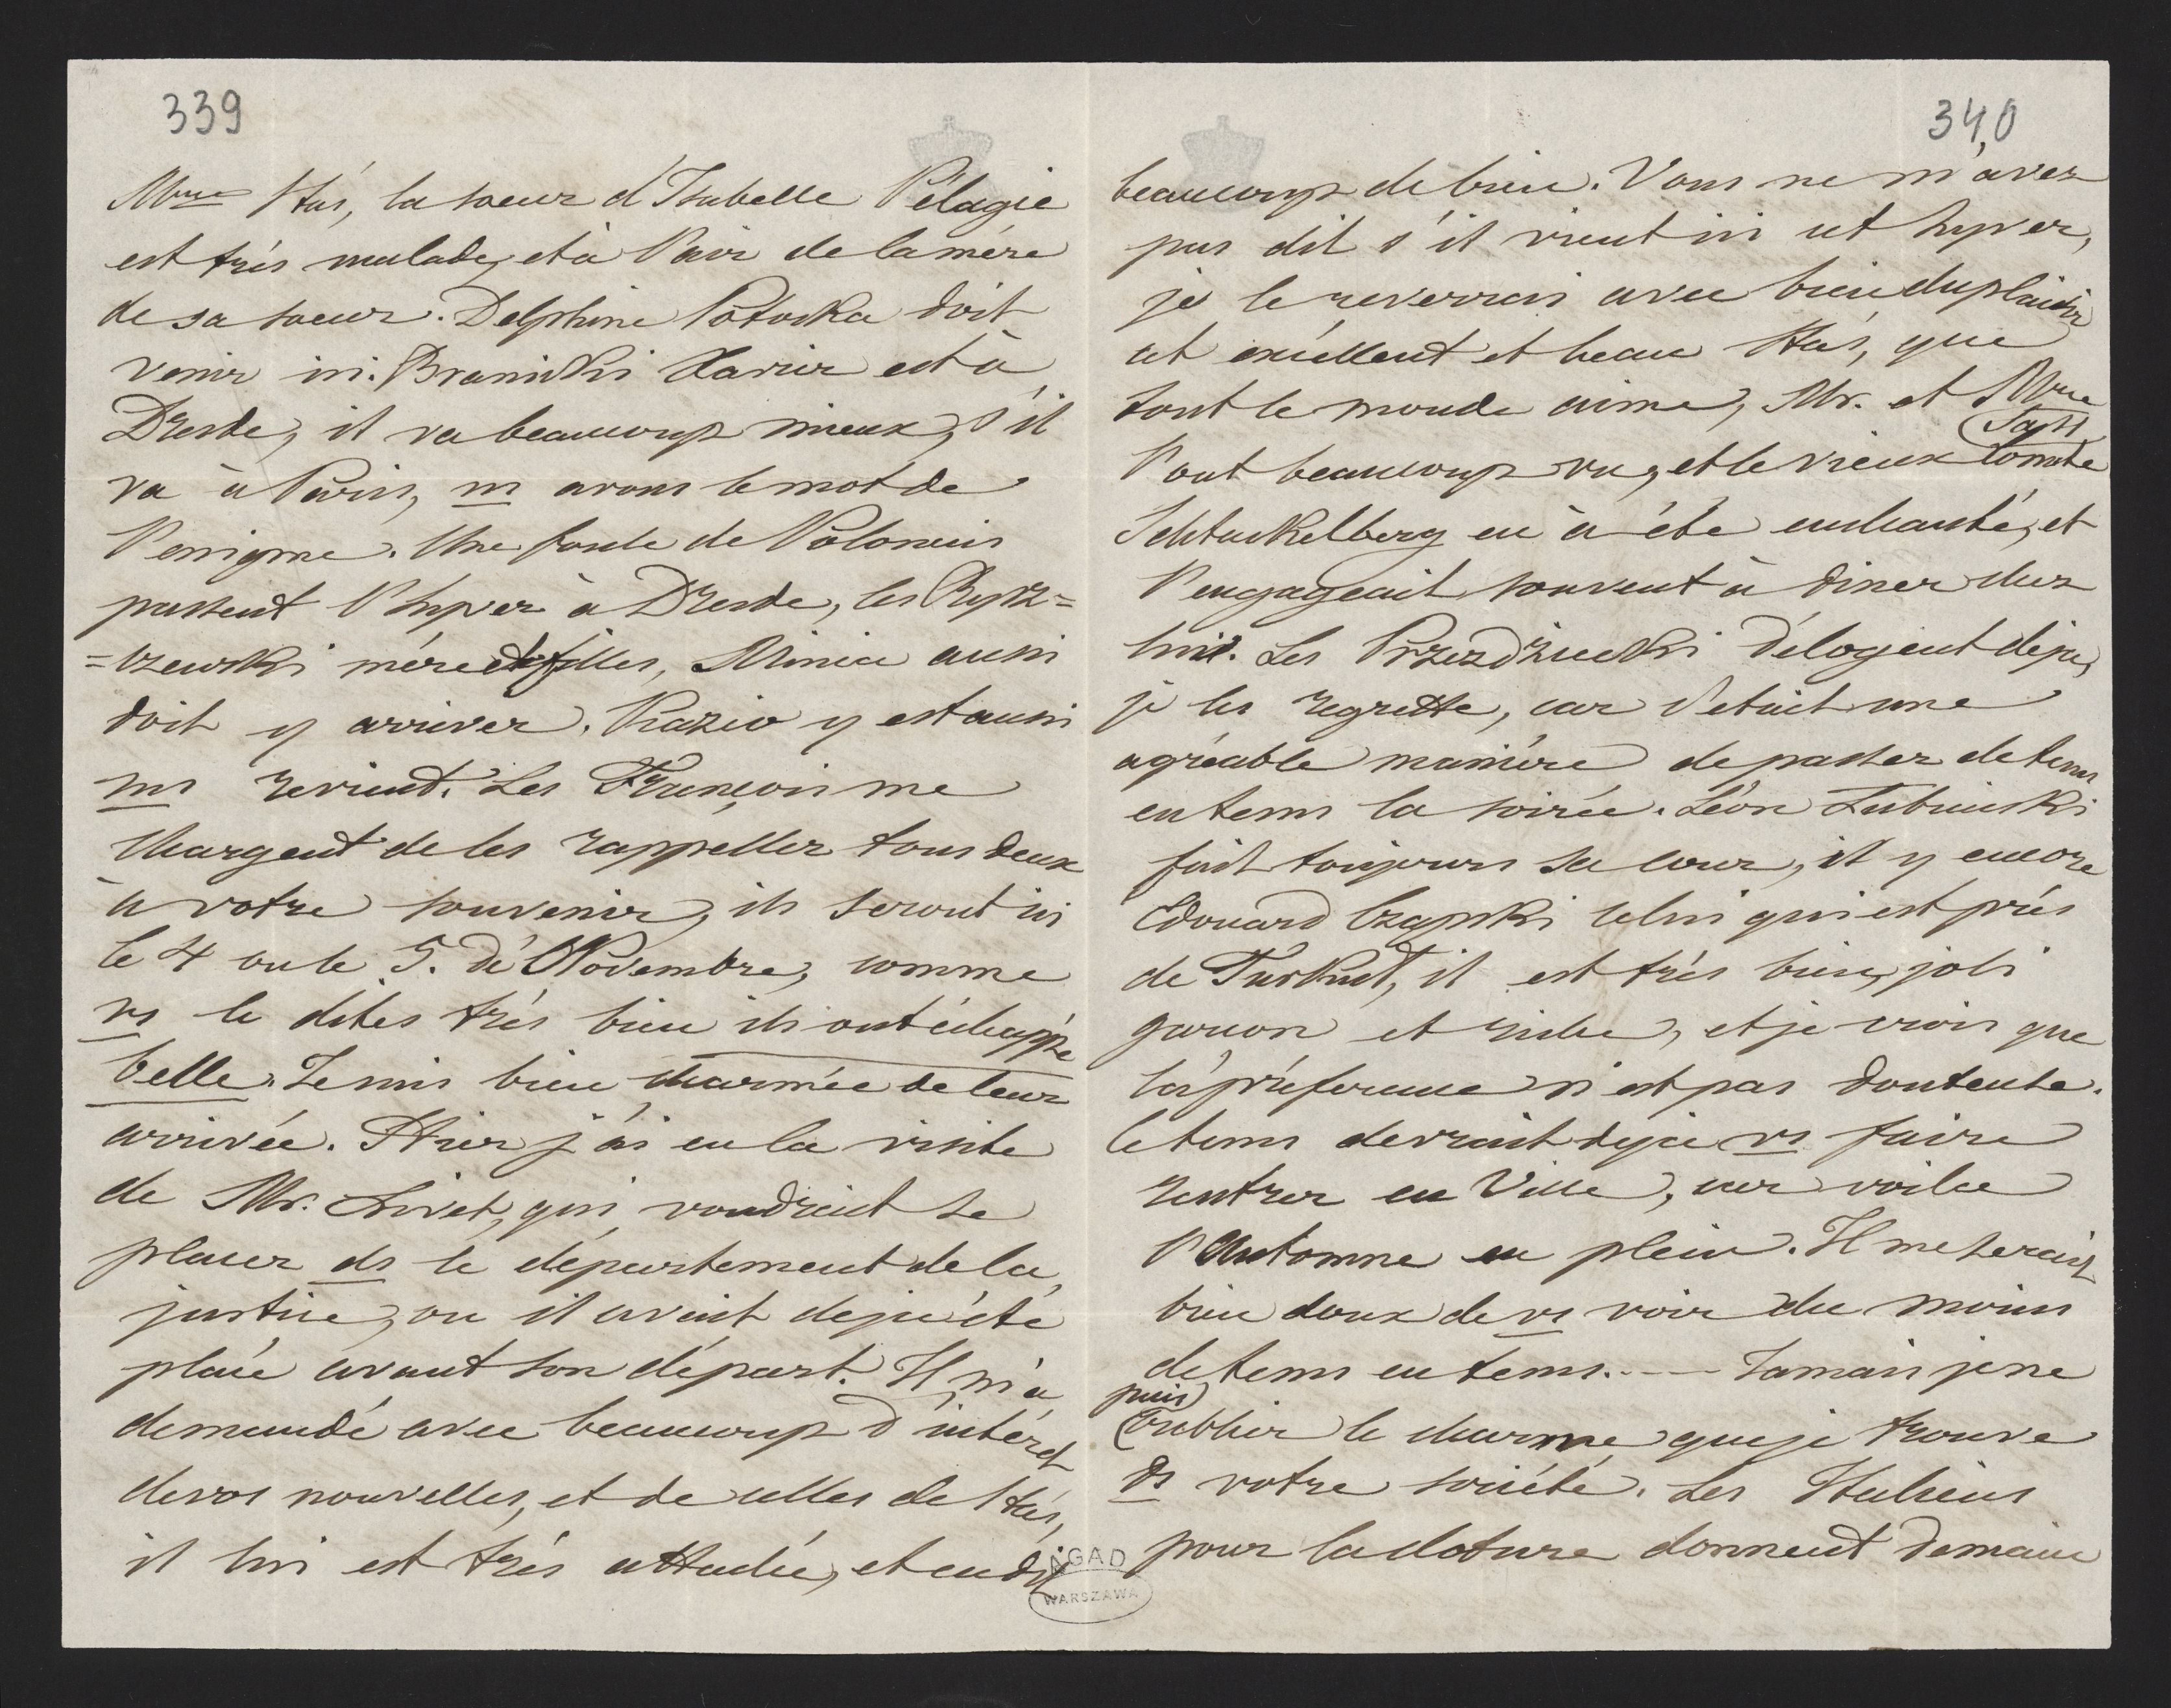 339
Mme Staś, la soeur d'Isabelle Pélagie
est trés malade, et à l'air de la mère
de sa soeur. Delphine Potocka doit
venir ici. Branicki Xavier est à
Dresde, il va beaucoup mieux, s'il
va à Paris, ns avons le mot de
l'enigme. Une foule de Polonais
passent l'hyver à Dresde, les Rysz=
=czewski mère et filles, Minia aussi
doit y arriver. Kazio y est aussi
ns revient. Les François me
chargent de les rappeller tous deux
à votre souvenir, ils seront ici
le 4 ou le 5. de Novembre, comme
vs le dites trés bien ils ont échappé
belle. Je suis bien charmée de leur
arrivée. Hier j'ai eu la visite
de Mr. Livet, qui voudrait se
placer ds le département de la
justice, ou il avait deja été
placé avant son départ. Il m'a
demandé avec beaucoup d'intéret
de vos nouvelles, et de celles de Staś,
il lui est trés attaché, et en dit
AGAD
WARSZAWA
340
beaucoup de bien. Vous ne m'avez
pas dit s'il vient ici cet hyver,
je le reverrai avec bien du plaisir
cet excellent et beau Staś, que
tout le monde aime, Mr. et Mme
l'ont beaucoup vu, et le vieux Comte
Schtackelberg en à été enchanté, et
l'engageait souvent à diner chez
lui. Les Przezdziecki délogent deja,
je les regrette, car c'etait une
agréable manière de passer de tems
en tems la soirée. Léon Lubinski
fait toujours sa cour, il y encore
Edouard Czapski celui qui est près
de Turkut, il est très bien, joli
garcon et riche, et je crois que
la préference n'est pas douteuse.
le tems devrait deja vs faire
rentrer en Ville, car voila
l'Automne en plein. Il me serait
bien doux de vs voir du moins
de tems en tems. --- Jamais je ne
puis
oublier le charme que je trouve
ds votre société. Les Italiens
pour la cloture donnent demain